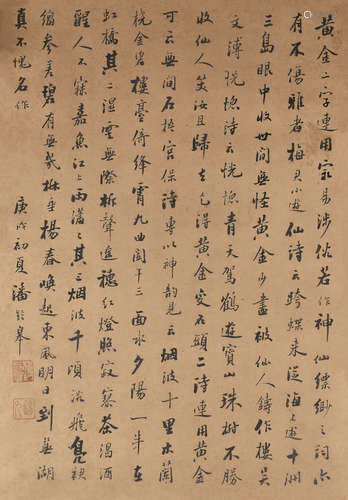 黃金二字連用寔易涉俗若作神仙縹緲之詞亦
有不傷雅者梅貝小遊仙詩云跨蝶來從海上遊十洲
三島眼中收世間無怪黃金少盡被仙人鑄作樓吳
文溥恍惚詩云恍惚青天駕鶴遊寶山珠樹不勝
收仙人笑汝且歸去乞得黃金変石頭二詩連用黃金
可云無間石梧宮保詩專以神韵見云烟波十里木蘭
橈金碧樓臺倚絳霄九曲闌干三面水夕陽一半在
虹橋其二湿雲無際柝聲遙穗紅燈照寂寥茶渴酒
醒人不寐嘉魚江上雨瀟瀟其三烟波千頃流飛鳧規
編參差碧有無幾樹垂楊春喚起東風明日到蕪湖
真不愧名作
庚戌初夏潘齡皋